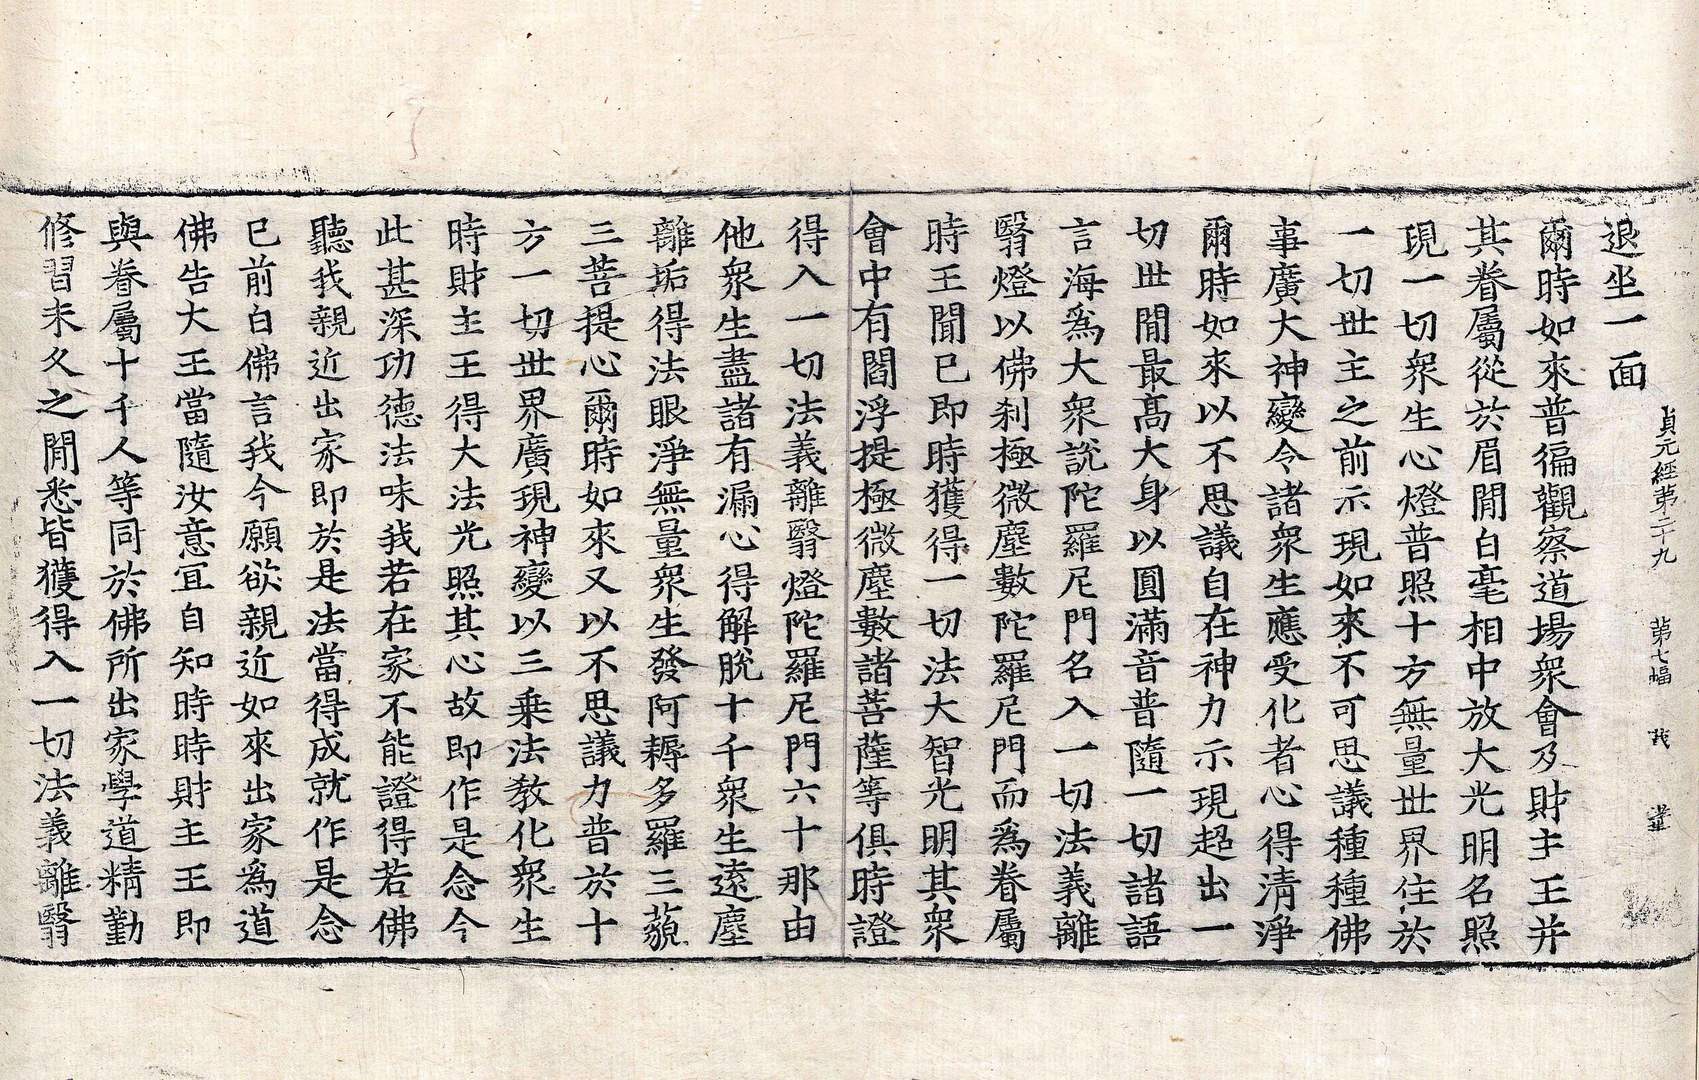 貞元經第二十九 第七幅
退坐一面
爾時如來普徧觀察道場衆會及財主王并
其眷屬從於眉閒白毫相中放大光明名照
現一切衆生心燈普照十方無量世界住於
一切世主之前示現如來不可思議種種佛
事廣大神變令諸衆生應受化者心得清淨
爾時如來以不思議自在神力示現超出一
切世閒最高大身以圓滿音普隨一切諸語
言海爲大衆說陀羅尼門名入一切法義離
翳燈以佛刹極微塵數陀羅尼門而爲眷屬
時王聞已即時獲得一切法大智光明其衆
會中有閻浮提極微塵數諸菩薩等俱時證
得入一切法義離翳燈陀羅尼門六十那由
他衆生盡諸有漏心得解脫十千衆生遠塵
離垢得法眼淨無量衆生發阿耨多羅三藐
三菩提心爾時如來又以不思議力普於十
方一切世界廣現神變以三乘法教化衆生
時財主王得大法光照其心故即作是念今
此甚深功德法味我若在家不能證得若佛
聽我親近出家即於是法當得成就作是念
已前白佛言我今願欲親近如來出家爲道
佛告大王當隨汝意宜自知時時財主王即
與眷屬十千人等同於佛所出家學道精勤
修習未久之閒悉皆獲得入一切法義離翳